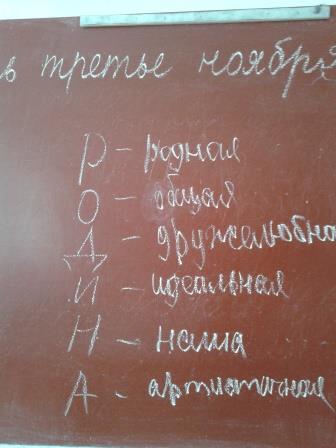 ь третье ноября
Р - родная
О - общая
Д - дружелюбна
И - идеальная
Н - наша
А - артистичная